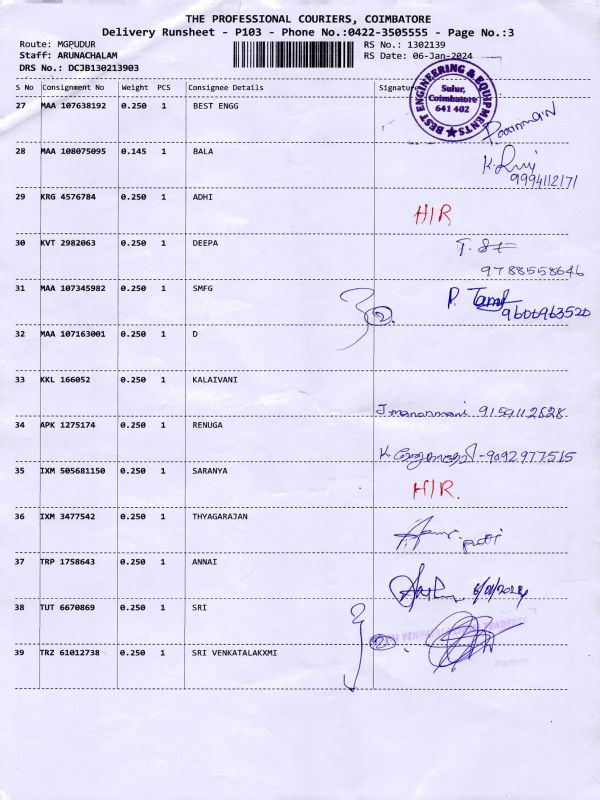 THE PROFESSIONAL COURIERS, COIMBATORE
Delivery Runsheet - P103 - Phone No.:0422-3505555 - Page No.:3
Route: MGPUDUR RS No.: 1302139
Staff: ARUNACHALAM RS Date: 06-Jan-2024
DRS No.: DCJB130213903
S No Consignment No Weight PCS Consignee Details Signature
BEST ENGINEERING & EQUIPMENTS
Sulur,
Coimbatore
641 402
27 MAA 107638192 0.250 1 BEST ENGG
28 MAA 108075095 0.145 1 BALA
9994112171
29 KRG 4576784 0.250 1 ADHI
H/R
30 KVT 2982063 0.250 1 DEEPA
9788558646
31 MAA 107345982 0.250 1 SMFG
9606963520
32 MAA 107163001 0.250 1 D
33 KKL 166052 0.250 1 KALAIVANI
J. manonmani 9159112628
34 APK 1275174 0.250 1 RENUGA
9092977515
35 IXM 505681150 0.250 1 SARANYA
H/R.
36 IXM 3477542 0.250 1 THYAGARAJAN
37 TRP 1758643 0.250 1 ANNAI
6/01/2024
38 TUT 6670869 0.250 1 SRI
39 TRZ 61012738 0.250 1 SRI VENKATALAKXMI